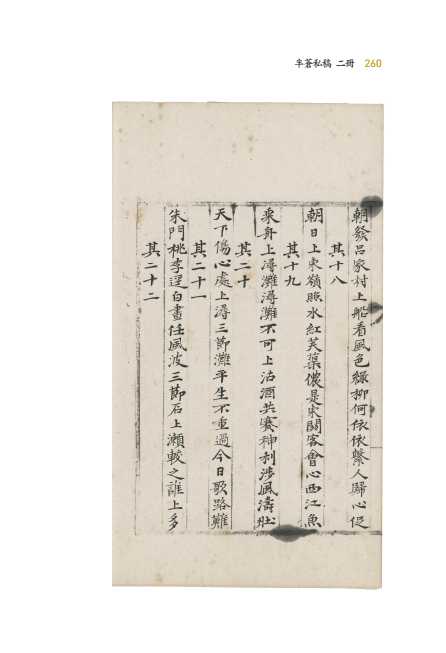 半蒼私稿 二冊 260
朝發呂家村上船看風色綠柳何依依繫人歸心促
其十八
朝日上東嶺照水紅芙蕖儂是東關客會心西江魚
其十九
乘舟上潯灘潯灘不可上沽酒共賽神利涉風濤壯
其二十
天下傷心處上潯三節灘平生不重過今日歌路難
其二十一
朱門桃李逕白晝任風波三節石上瀨較之誰上多
其二十二